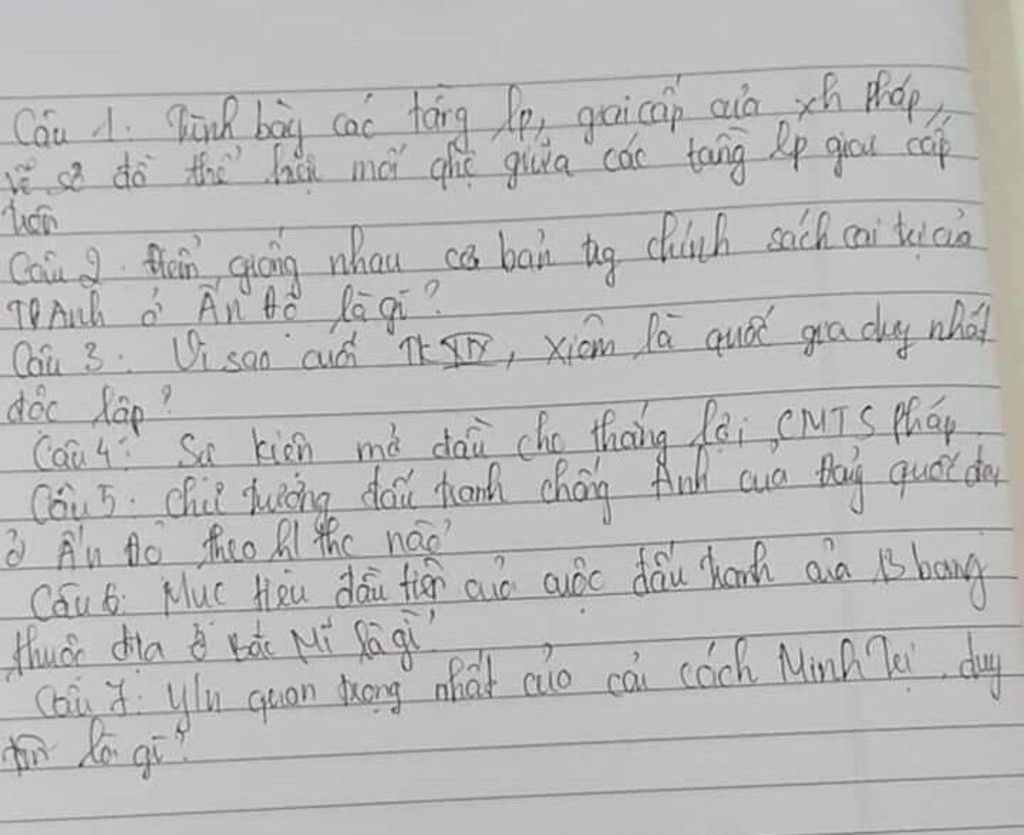 Câu 1. Trình bày các tầng lp, giai cấp của xh Pháp,
vẽ sơ đồ thể hiện mối qhệ giữa các tầng lp giai cấp
trên
Câu 2. Điểm giống nhau cơ bản tg chính sách cai trị của
TD Anh ở Ấn Độ là gì?
Câu 3. Vì sao cuối TK XIX, Xiêm là quốc gia duy nhất
độc lập?
Câu 4: Sự kiện mở đầu cho thắng lợi CMTS Pháp
Câu 5: Chủ trương đấu tranh chống Anh của Đảng quốc đại
ở Ấn Độ theo hthc nào
Câu 6: Mục tiêu đầu tiên của cuộc đấu tranh của 13 bang
thuộc địa ở Bắc Mĩ là gì
Câu 7: Y/n quan trọng nhất của cải cách Minh Trị duy
tân là gì?